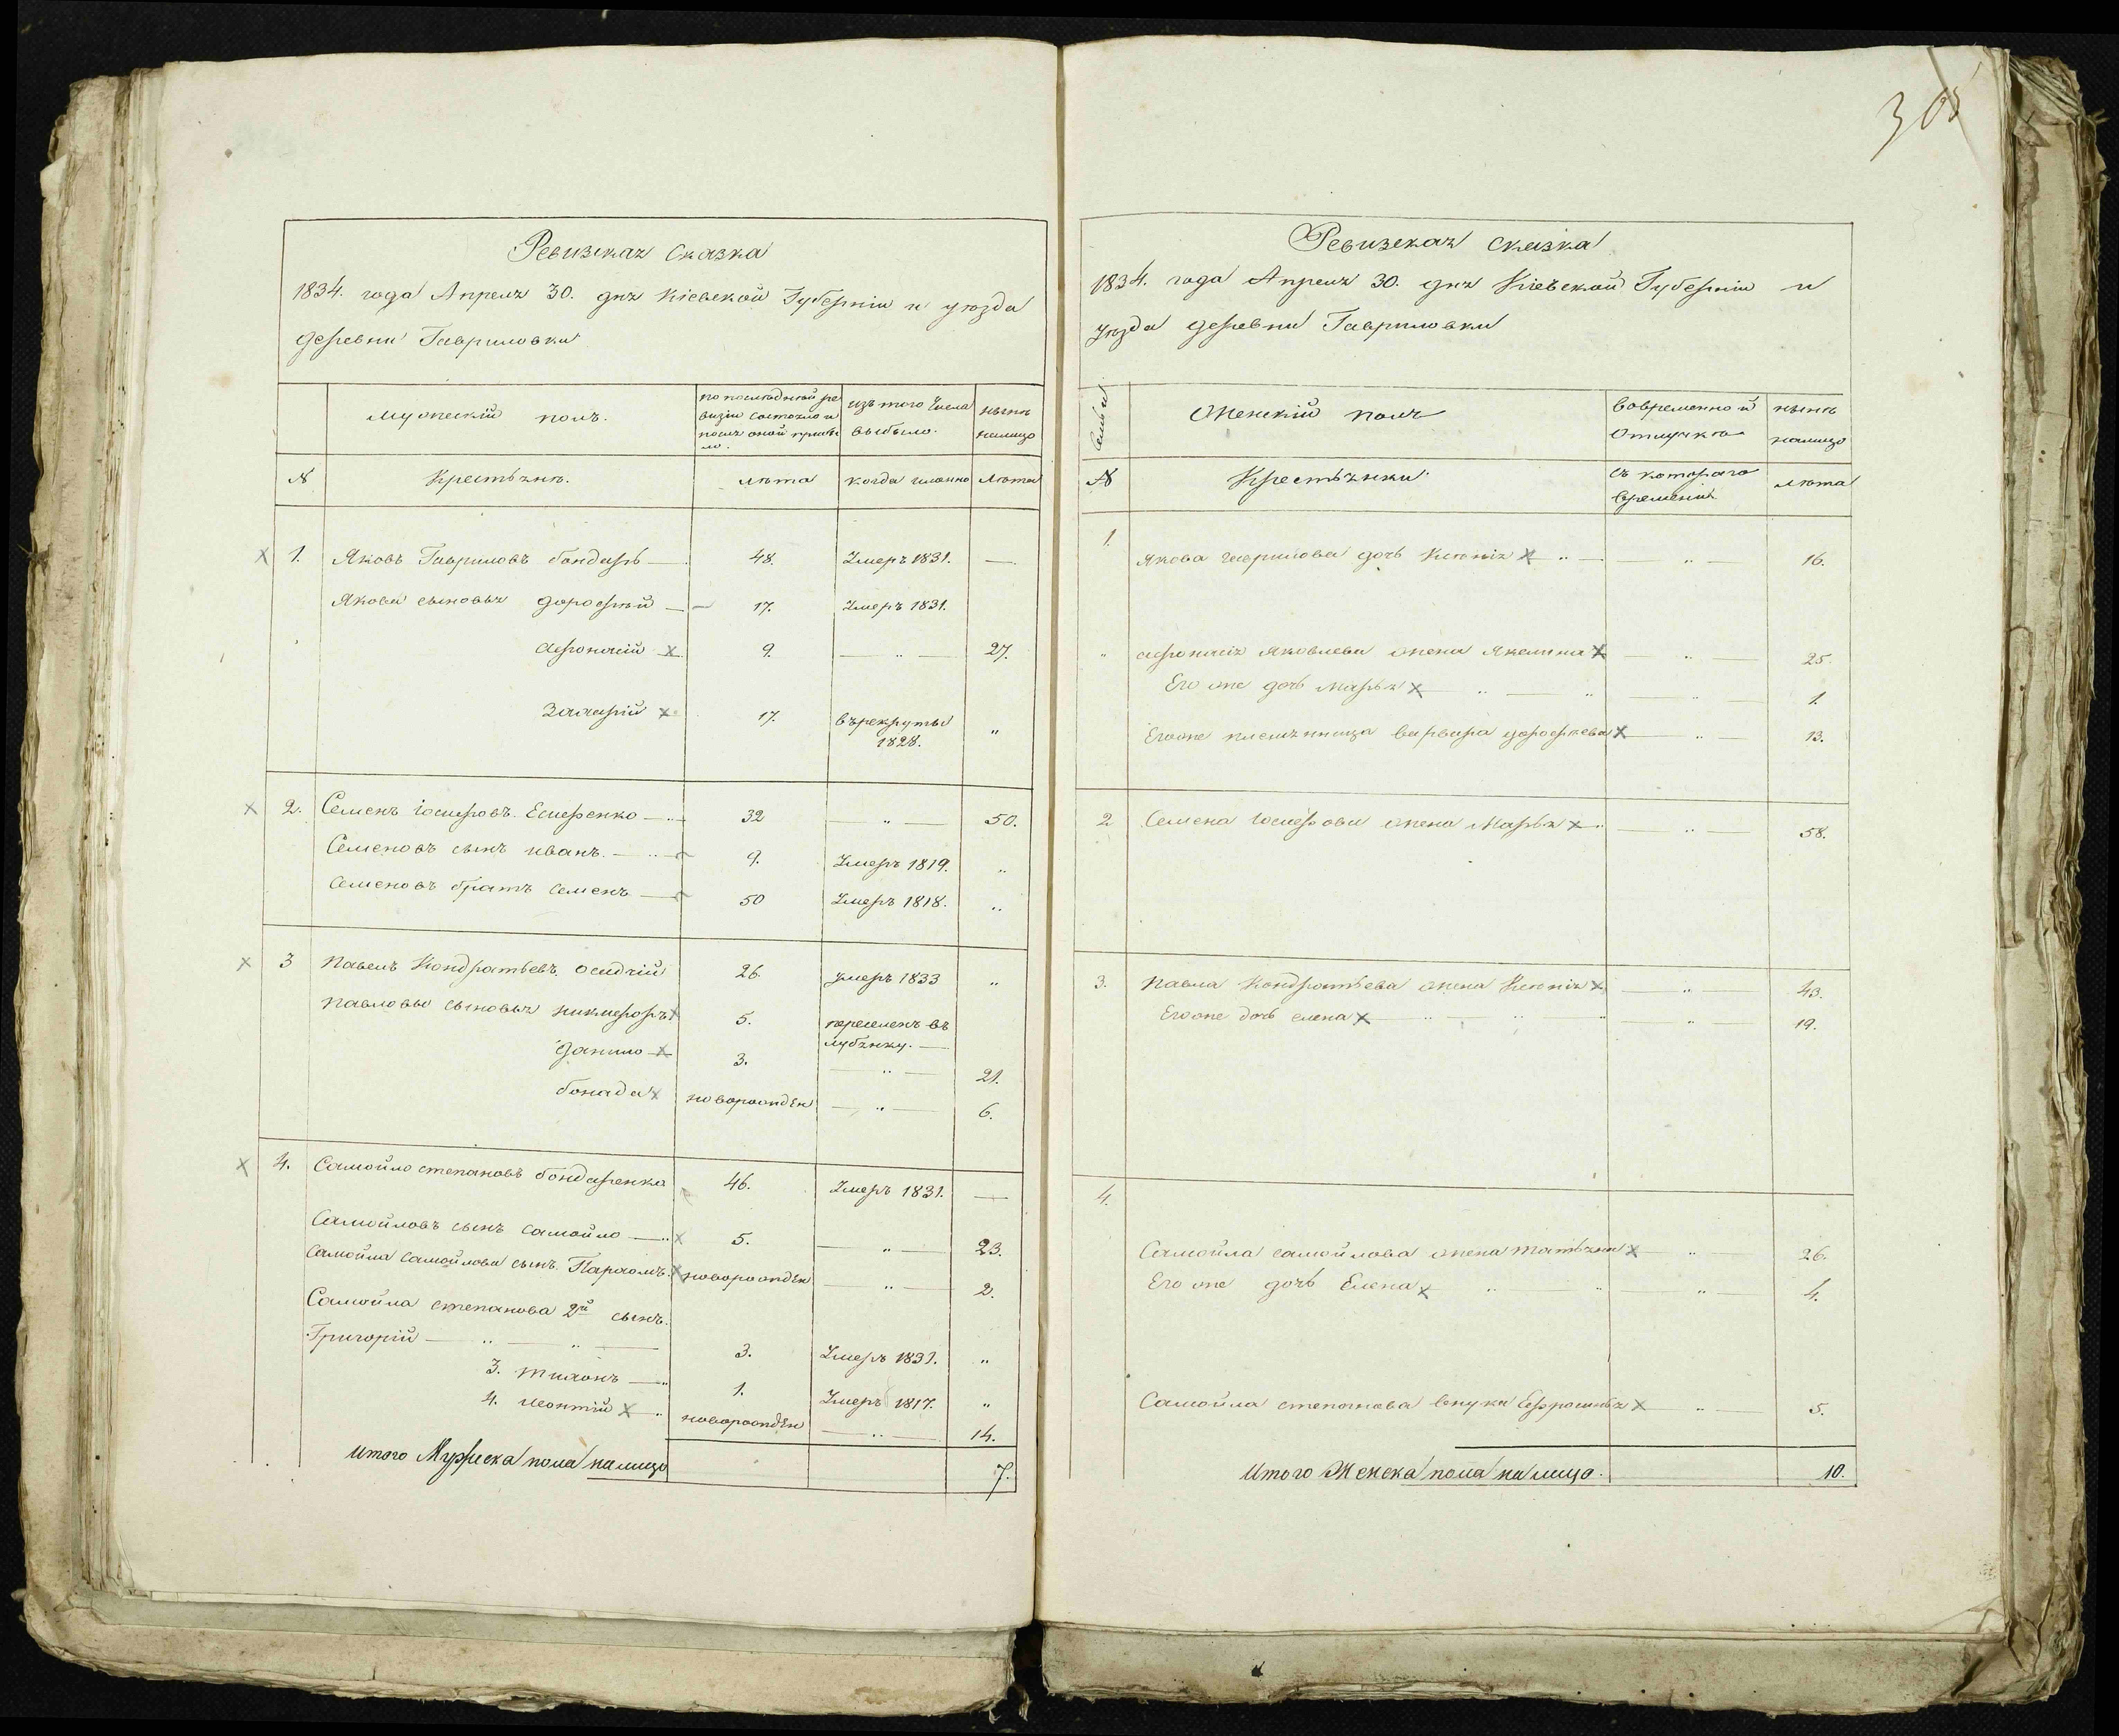 305
Ревизская сказка
1834. года Апреля 30. дня Кіевской Губерніи и уѣзда
деревни Гавриловки
Мужескій полъ.
по последнѣй ре
визіи состояло и
послѣ оной прибы
ло.
изъ того Числа
выбыло.
нынѣ
налицо
№ Крестьянѣ. лѣта когда именно лѣта
1. Яковъ Гавриловъ бондарь 48. Умеръ 1831. —
Якова сыновья дорофѣй 17. Умеръ 1831.
афонасій 9. — " — 27.
Захарій 17. въ рекруты "
1828.
2. Семенъ іосифовъ Есиеренко 32 — " — 50.
Семеновъ сынъ иванъ. 9. Умеръ 1819. "
Семеновъ братъ Семенъ 50 Умеръ 1818. "
3 Павелъ Кондратьевъ 26 Умеръ 1833 "
Павловы сыновья никифоръ 5. переселенъ въ
лубянку.
данило 3. — " — 21.
новорожден — " — 6.
4. Самойло степановъ бондаренко 46. Умеръ 1831. —
Самойловъ сынъ самойло 5. — " — 23.
Самойла Самойлова сынъ Пархомъ новорожден — " — 2.
Самойла степанова 2й сынъ
Григорій — " — " — 3. Умеръ 1831. "
3. тихонъ 1. Умеръ 1817. "
4. леонтій новорожден — " — 14.
Итого Мужеска пола налицо 7.
Ревизская сказка
1834. года Апреля 30. дня Кіевской Губерніи и
уѣзда деревни Гавриловки
Семьи
Женскій полъ
Вовременной
Отлучкѣ
нынѣ
налицо
№ Крестьянки съ котораго лѣта
времени
1. Якова гаврилова дочь Ксенія — " — 16.
" афонасія яковлева жена Акелина — " — 25.
Его же дочь марья — " — 1.
Егоже племянница варвара дорофѣева — " — 13.
2 Семена іосифова жена Марья — " — 58.
3. Павла Кондратьева жена Ксенія — " — 43.
Егоже дочь елена " 19.
4.
Самойла самойлова жена татьяна " 26.
Его же дочь Елена — " — 4.
Самойла степанова внука Ефросинья " 5.
Итого Женска пола налицо. 10.